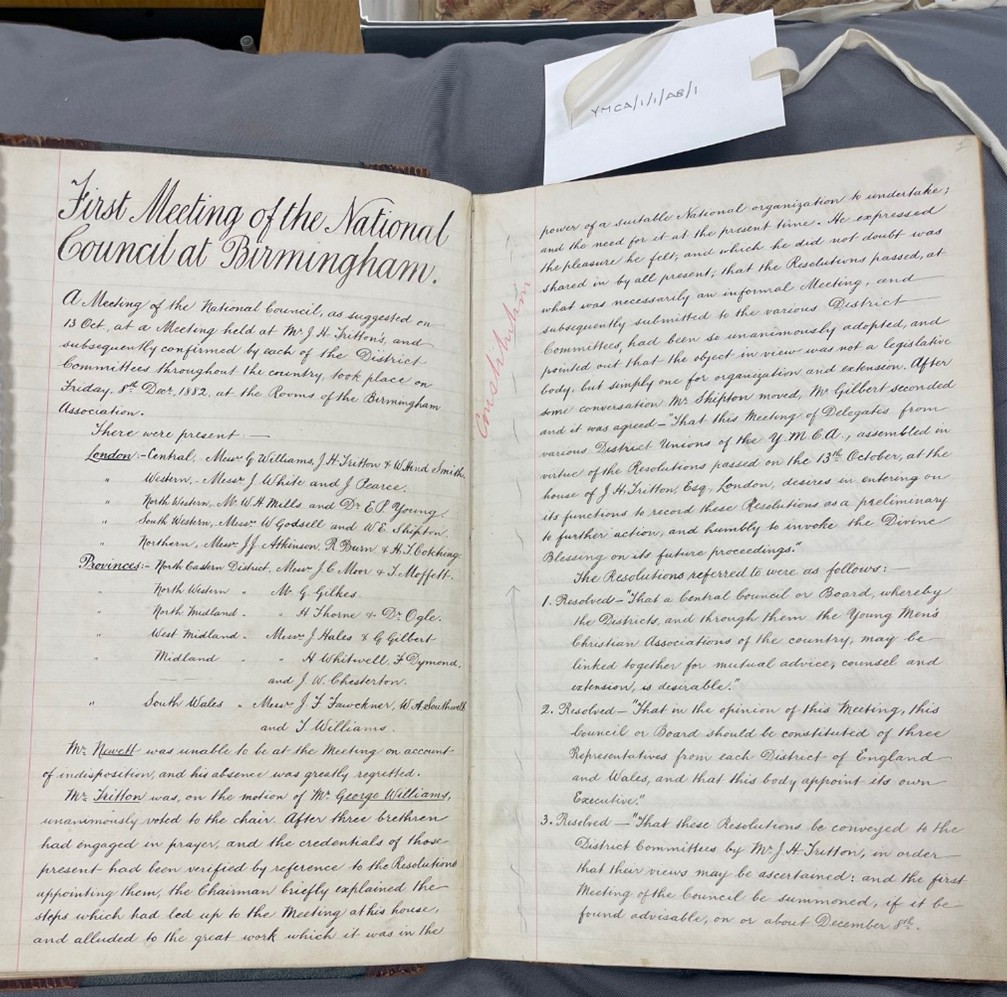 YMCA/1/1/A8/1
First Meeting of the National
Council at Birmingham.
A Meeting of the National Council, as suggested on
13 Oct, at a Meeting held at Mr J. H. Tritton's, and
subsequently confirmed by each of the District
Committees throughout the country, took place on
Friday, 8th Decr, 1882, at the Rooms of the Birmingham
Association.
There were present:—
London:- Central, Messrs G Williams, J. H. Tritton & W Hind Smith.
" Western, - Messrs J. White and J. Pearce.
" North Western, Mr W H Mills and Dr E P Young.
" South Western, Messrs W Godsell and W. E. Shipton.
" Northern, Messrs J. J. Atkinson, R. Burn & H. T.
Provinces:- North Eastern District, Messrs J. C Moor & T. Moffett.
" North Western " Mr G. Gilkes.
" North Midland " " H Thorne & Dr Ogle.
" West Midland " Messrs J Hales & G Gilbert
" Midland " " H Whitwell, F Dymond,
and J. W. Chesterton.
" South Wales " Messrs J. F. Fawckner, W. A. Southwell
and T Williams.
Mr Newett was unable to be at the Meeting on account
of indisposition, and his absence was greatly regretted.
Mr Tritton was, on the motion of Mr George Williams,
unanimously voted to the chair. After three brethren
had engaged in prayer, and the credentials of those
present had been verified by reference to the Resolutions
appointing them, the Chairman briefly explained the
steps which had led up to the Meeting at his house,
and alluded to the great work which it was in the
Constitution
power of a suitable National organization to undertake;
and the need for it at the present time. He expressed
the pleasure he felt; and which he did not doubt was
shared in by all present; that the Resolutions passed, at
what was necessarily an informal Meeting, and
subsequently submitted to the various District
Committees, had been so unanimously adopted, and
pointed out that the object in view was not a legislative
body, but simply one for organization and extension. After
some conversation Mr Shipton moved, Mr Gilbert seconded
and it was agreed—"That this Meeting of Delegates from
various District Unions of the Y. M. C. A., assembled in
virtue of the Resolutions passed on the 13th October, at the
house of J. H. Tritton, Esq., London, desires in entering on
its functions to record these Resolutions as a preliminary
to further action, and humbly to invoke the Divine
Blessing on its future proceedings."
The Resolutions referred to were as follows:—
1. Resolved—"That a Central Council or Board, whereby
the Districts, and through them the Young Men's
Christian Associations of the country, may be
linked together for mutual advice, counsel and
extension, is desirable."
2. Resolved—"That in the opinion of this Meeting, this
Council or Board should be constituted of three
Representatives from each District of England
and Wales, and that this body appoint its own
Executive."
3. Resolved—"That these Resolutions be conveyed to the
District Committees by Mr J. H. Tritton, in order
that their views may be ascertained: and the first
Meeting of the Council be summoned, if it be
found advisable, on or about December 8th.